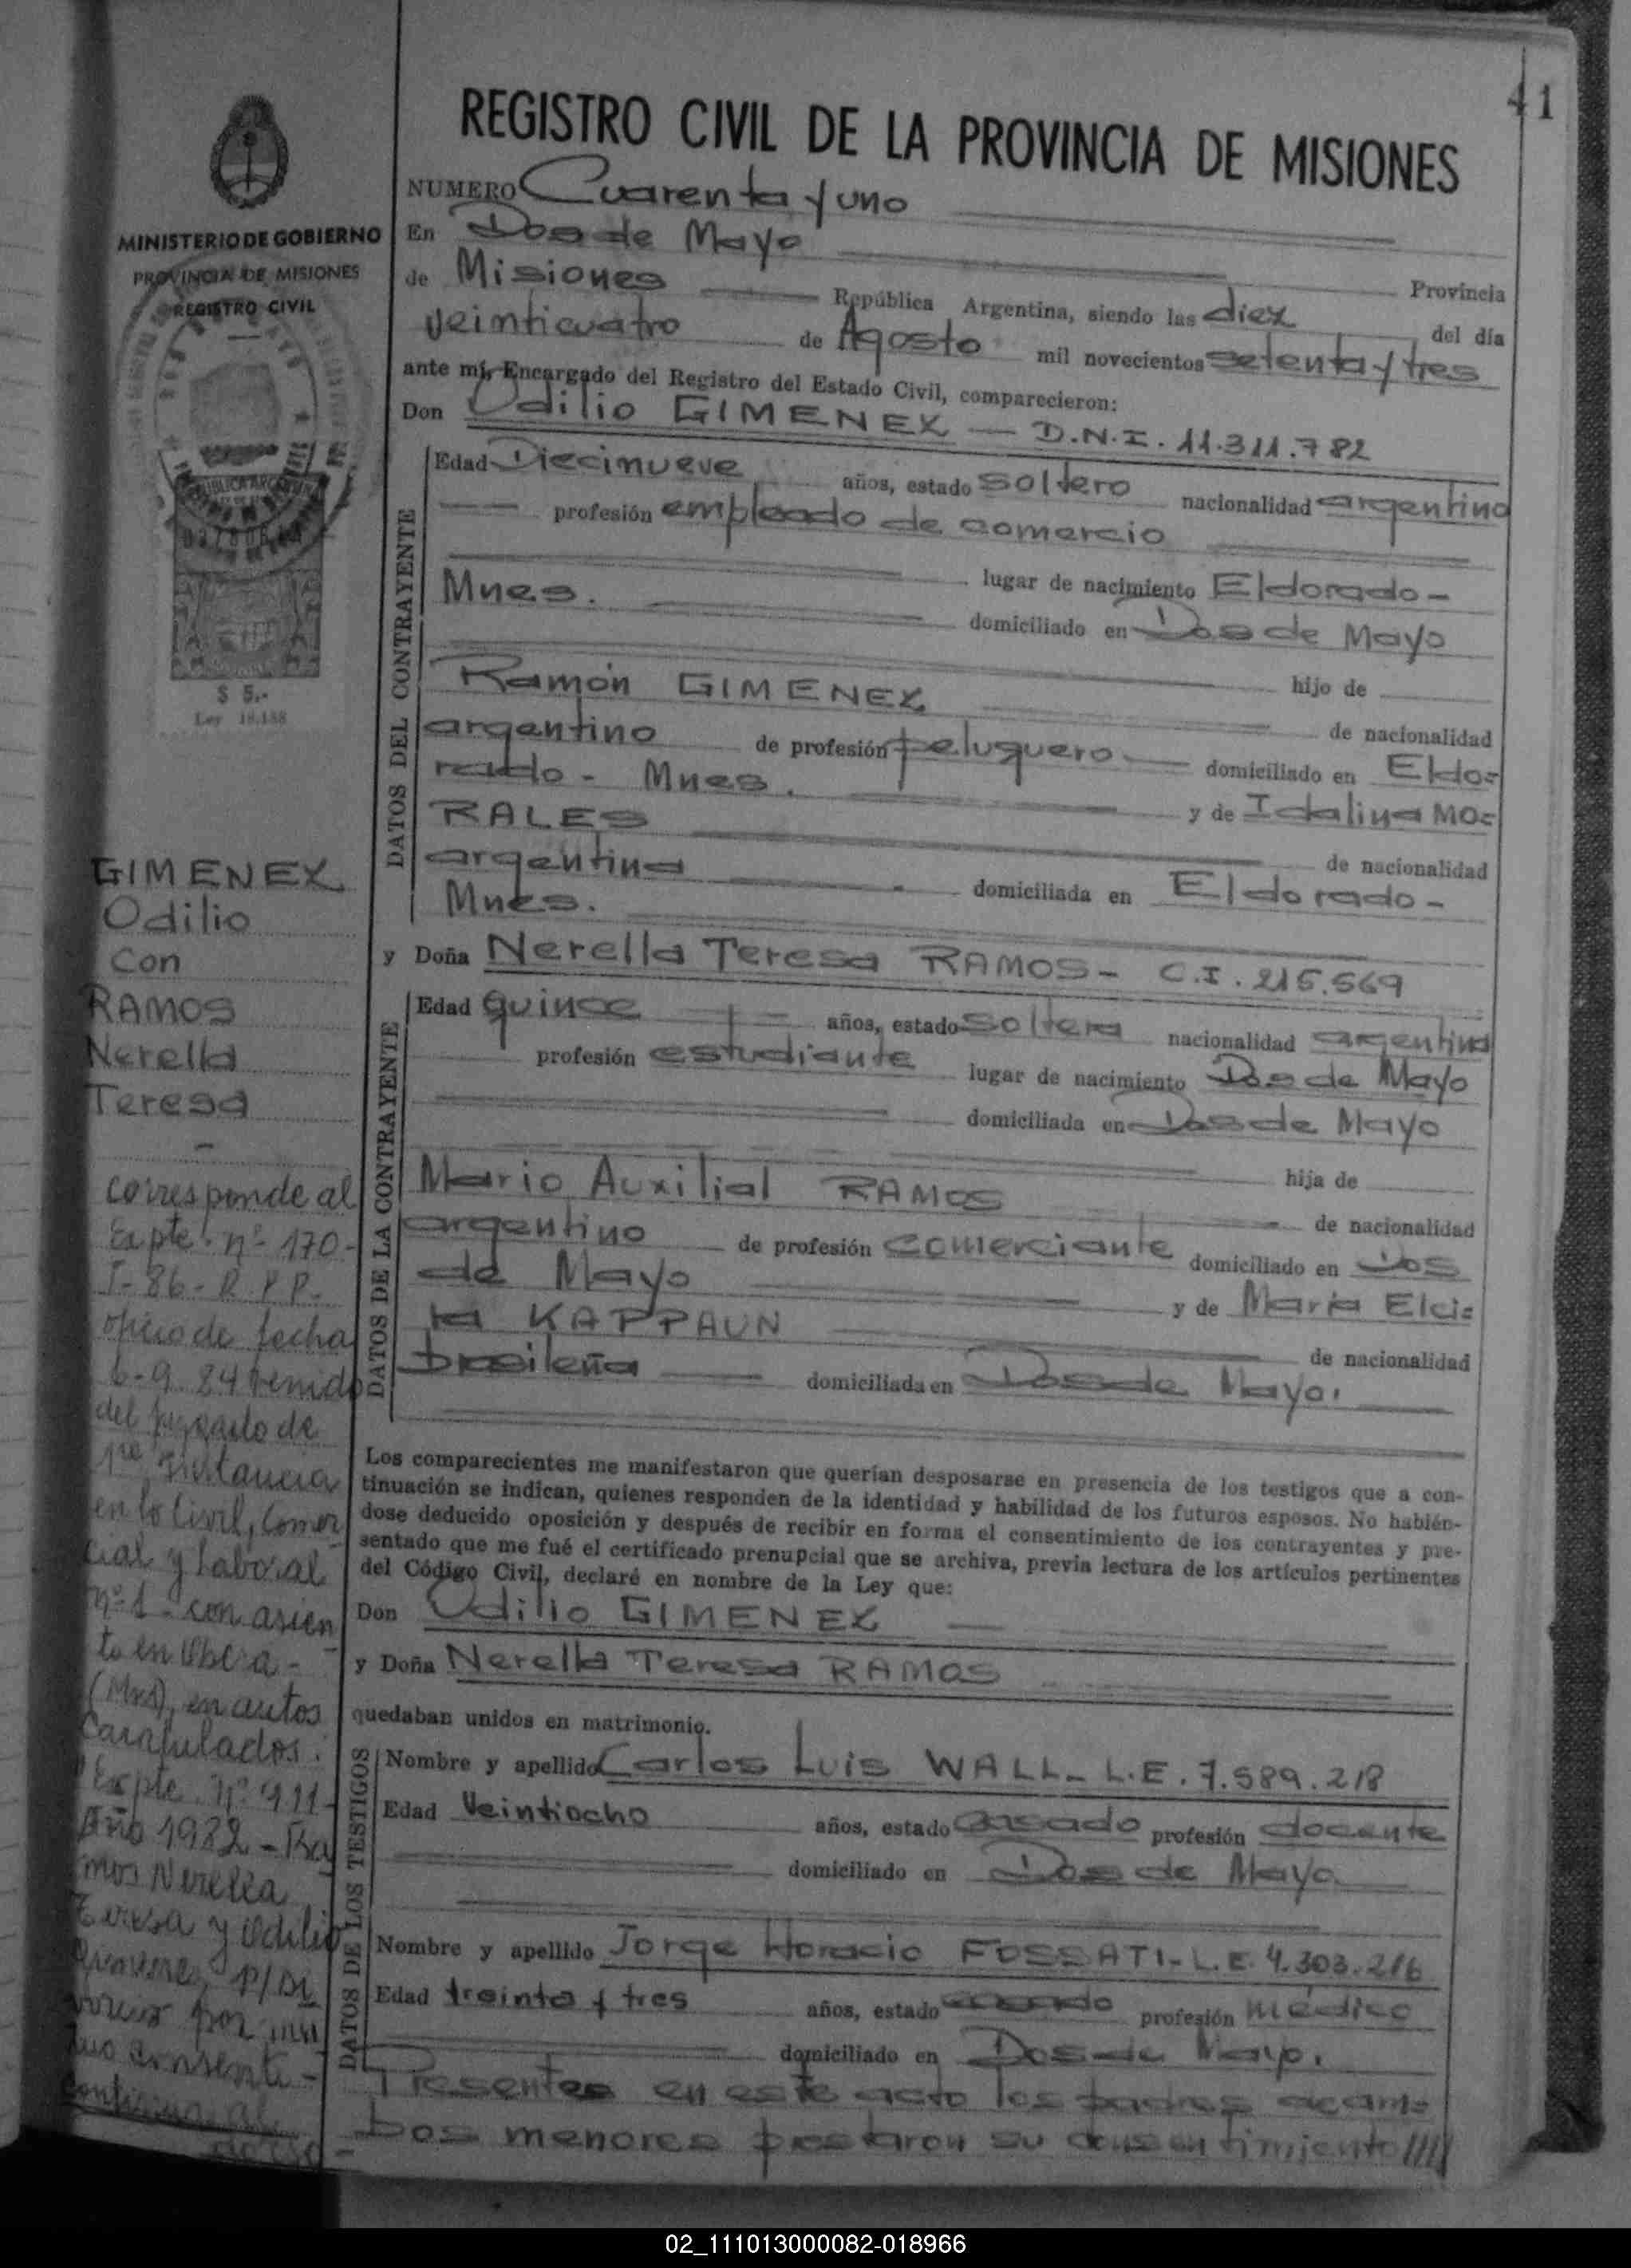 41
REGISTRO CIVIL DE LA PROVINCIA DE MISIONES
NUMERO Cuarenta y uno
En Dos de Mayo Provincia
de Misiones República Argentina, siendo las diez del día
veinticuatro de Agosto mil novecientos setenta y tres
ante mí, Encargado del Registro del Estado Civil, comparecieron:
Don Odilio GIMENEZ — D.N.I. 11.311.782
DATOS DEL CONTRAYENTE
Edad Diecinueve años, estado soltero nacionalidad argentino
profesión empleado de comercio
lugar de nacimiento Eldorado -
Mnes. domiciliado en Dos de Mayo
hijo de
Ramón GIMENEZ de nacionalidad
argentino de profesión peluquero domiciliado en Eldo=
rado - Mnes. y de Idalina MO=
RALES de nacionalidad
argentina domiciliada en Eldorado -
Mnes.
y Doña Nerella Teresa RAMOS - C.I. 215.569
DATOS DE LA CONTRAYENTE
Edad quince años, estado soltera nacionalidad argentina
profesión estudiante lugar de nacimiento Dos de Mayo
domiciliada en Dos de Mayo
hija de
Mario Auxilial RAMOS de nacionalidad
argentino de profesión comerciante domiciliado en Dos
de Mayo y de María Elci=
ra KAPPAUN de nacionalidad
brasileña domiciliada en Dos de Mayo.
Los comparecientes me manifestaron que querían desposarse en presencia de los testigos que a con-
tinuación se indican, quienes responden de la identidad y habilidad de los futuros esposos. No habién-
dose deducido oposición y después de recibir en forma el consentimiento de los contrayentes y pre-
sentado que me fué el certificado prenupcial que se archiva, previa lectura de los artículos pertinentes
del Código Civil, declaré en nombre de la Ley que:
Don Odilio GIMENEZ
y Doña Nerella Teresa RAMOS
quedaban unidos en matrimonio.
DATOS DE LOS TESTIGOS
Nombre y apellido Carlos Luis WALL - L.E. 7.589.218
Edad Veintiocho años, estado casado profesión docente
domiciliado en Dos de Mayo
Nombre y apellido Jorge Horacio FOSSATI - L.E. 4.303.216
Edad treinta y tres años, estado casado profesión médico
domiciliado en Dos de Mayo.
Presentes en este acto los padres de am=
bos menores prestaron su consentimiento////
MINISTERIO DE GOBIERNO
PROVINCIA DE MISIONES
REGISTRO CIVIL
$ 5.-
Ley 18.188
GIMENEZ
Odilio
Con
RAMOS
Nerella
Teresa
-
corresponde al
Expte. nº 170-
I-86-R.P.P.
oficio de fecha
6-9-84 venido
del juzgado de
1ra Instancia
en lo Civil, Comer
cial y Laboral
nº 1 - con asien
to en Oberá -
(Mnes), en autos
Caratulados:
"Expte. nº 911-
Año 1982 - Ra
mos Nerella
Teresa y Odilio
Gimenez p/Di
vorcio por mu
tuo consenti-
continua al
dorso -
02_111013000082-018966